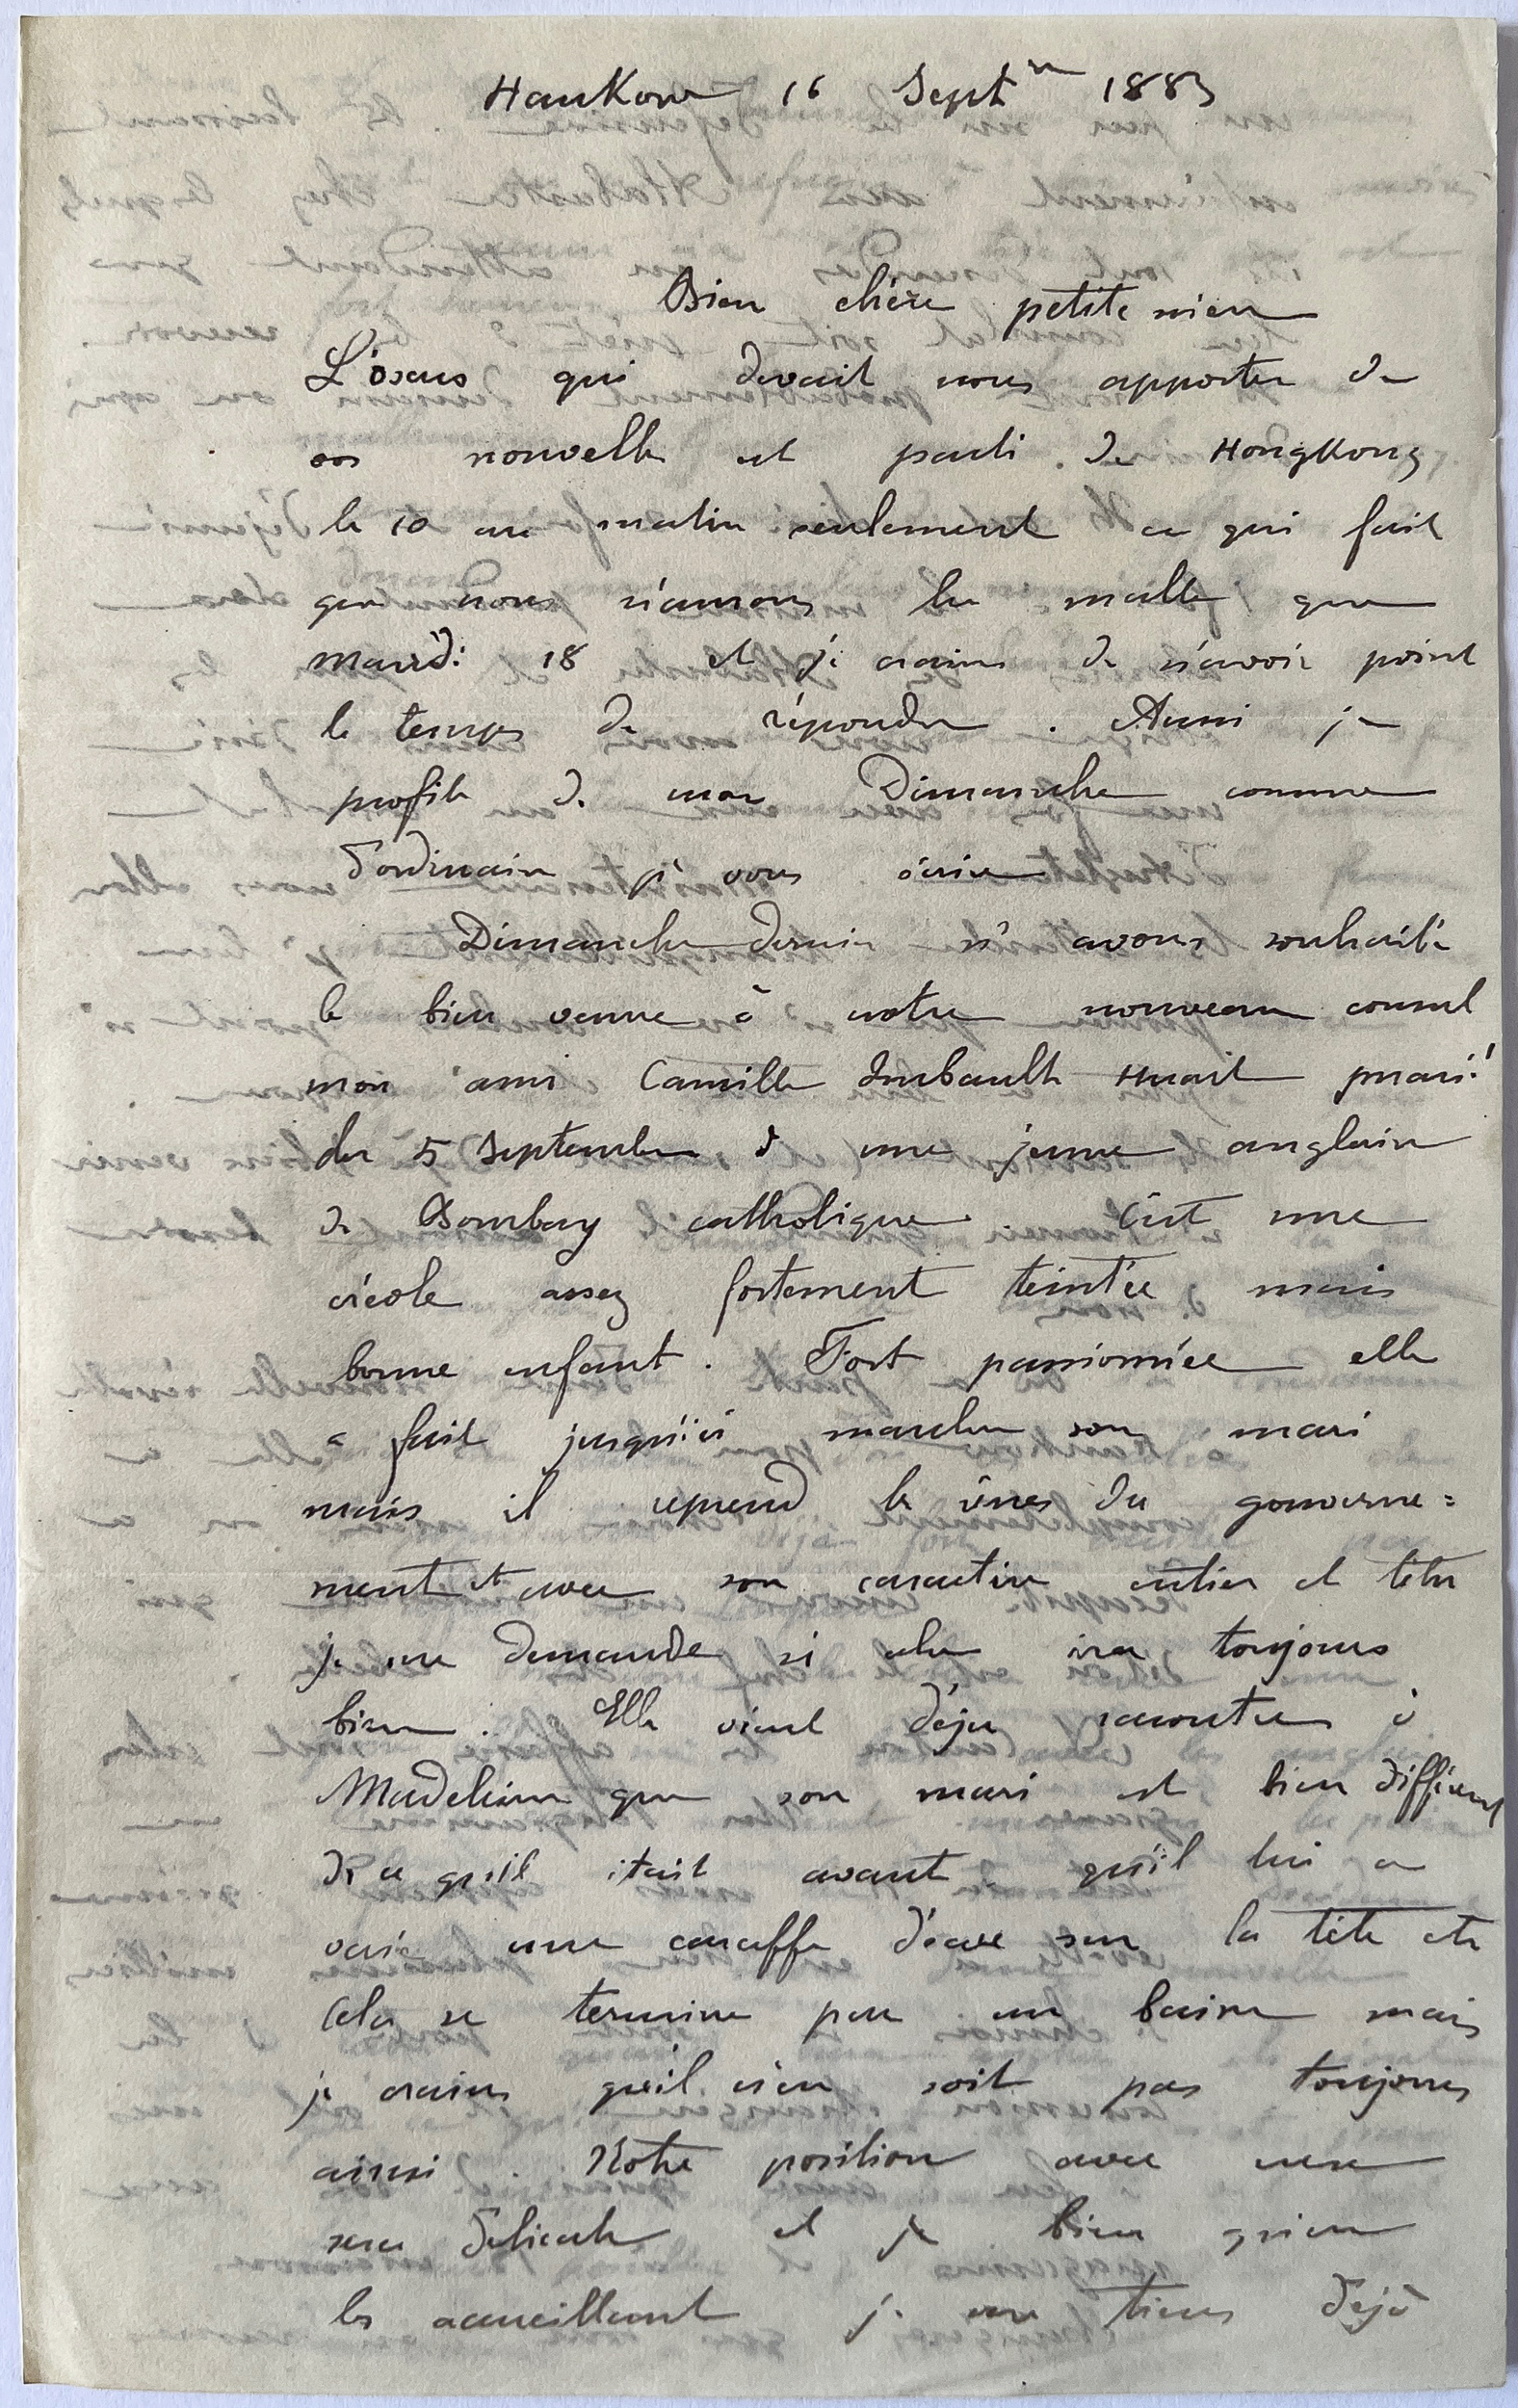 Hankow 16 Sept^re 1883
Bien chère petite mère
L'Oxus qui devait nous apporter de
vos nouvelles est parti de HongKong
le 10 au matin seulement ce qui fait
que nous n'aurons la malle que
mardi 18 et je crains de n'avoir point
le temps de répondre. Aussi je
profite de mon Dimanche comme
d'ordinaire pr vous écrire
Dimanche dernier ns avons souhaité
la bien venue à notre nouveau consul
mon ami Camille Imbault Huart marié
du 5 Septembre à une jeune anglaise
de Bombay catholique. C'est une
créole assez fortement teintée mais
bonne enfant. Fort passionnée elle
a fait jusqu'ici marcher son mari
mais il reprend les rênes du gouverne=
ment et avec son caractère entier et têtu
je me demande si cela ira toujours
bien. Elle vient déjà raconter à
Madeleine que son mari est bien différent
de ce qu'il était avant, qu'il lui a
versé une caraffe d'eau sur la tête etc
Cela se termine par un baiser mais
je crains qu'il n'en soit pas toujours
ainsi. Notre position avec eux
sera délicate et bien que
les accueillant je me tiens déjà